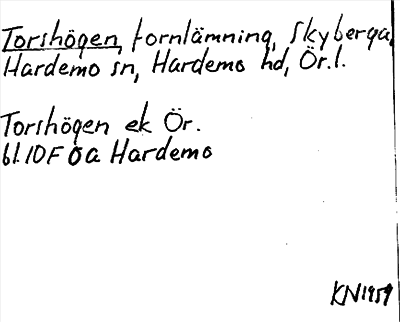 Torshögen, fornlämning, Skyberga,
Hardemo sn, Hardemo hd, Ör.l.
Torshögen ek Ör.
bl.10F 0a Hardemo
KN1959